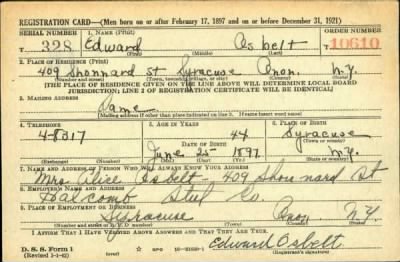 REGISTRATION CARD—(Men born on or after February 17, 1897 and on or before December 31, 1921)
SERIAL NUMBER 1. NAME (Print) ORDER NUMBER
T 328 Edward Osbelt 10610
(First) (Middle) (Last)
2. PLACE OF RESIDENCE (Print)
409 Shonnard St Syracuse Onon. N.Y.
(Number and street) (Town, township, village, or city) (County) (State)
[THE PLACE OF RESIDENCE GIVEN ON THE LINE ABOVE WILL DETERMINE LOCAL BOARD
JURISDICTION; LINE 2 OF REGISTRATION CERTIFICATE WILL BE IDENTICAL]
3. MAILING ADDRESS
Same
[Mailing address if other than place indicated on line 2. If same insert word same]
4. TELEPHONE 5. AGE IN YEARS 6. PLACE OF BIRTH
4-8317 44 Syracuse
DATE OF BIRTH (Town or county)
June 25 1897 N.Y.
(Exchange) (Number) (Mo.) (Day) (Yr.) (State or country)
7. NAME AND ADDRESS OF PERSON WHO WILL ALWAYS KNOW YOUR ADDRESS
Mrs. Alice Osbelt - 409 Shonnard St
8. EMPLOYER'S NAME AND ADDRESS
Halcomb Steel Co.
9. PLACE OF EMPLOYMENT OR BUSINESS
Syracuse Onon N.Y.
(Number and street or R. F. D. number) (Town) (County) (State)
I AFFIRM THAT I HAVE VERIFIED ABOVE ANSWERS AND THAT THEY ARE TRUE.
D. S. S. Form 1 Edward Osbelt
(Revised 1-1-42) (Registrant's signature)